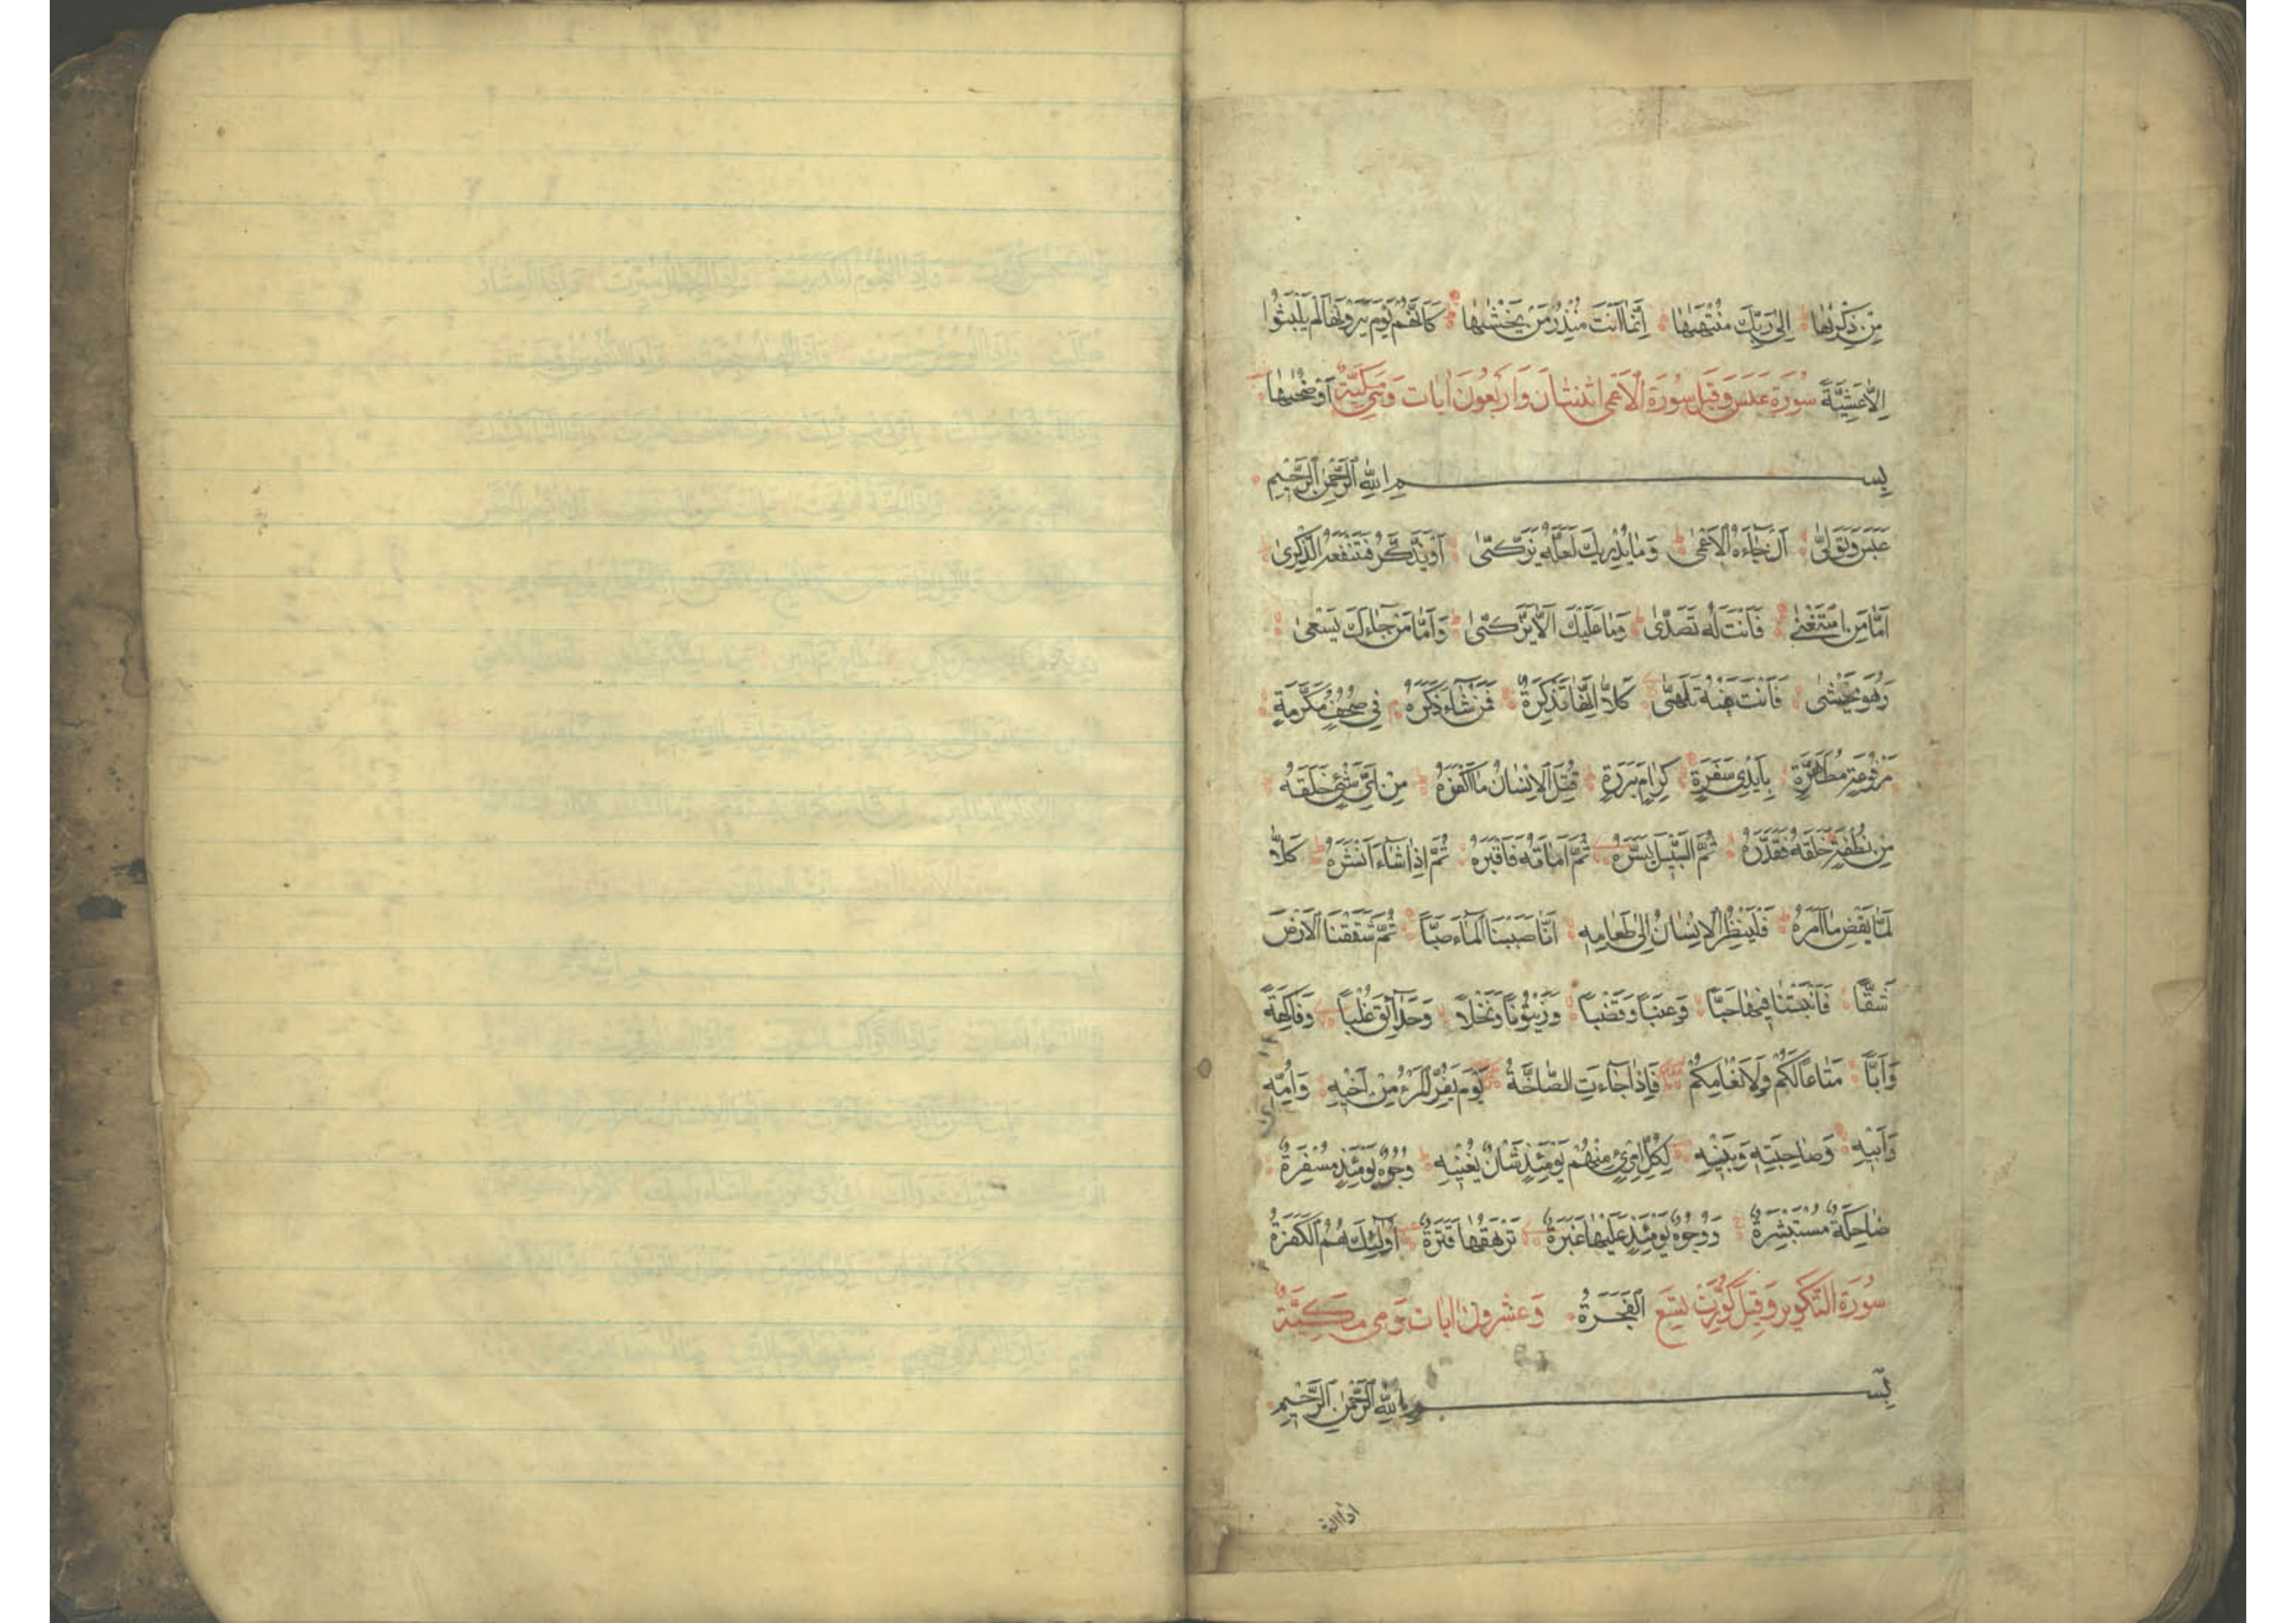 مِنْ ذِكْرٰىهَا اِلٰى رَبِّكَ مُنْتَهٰىهَا اِنَّمَا اَنْتَ مُنْذِرُ مَنْ يَخْشٰىهَا كَاَنَّهُمْ يَوْمَ يَرَوْنَهَا لَمْ يَلْبَثُوا
اِلَّا عَشِيَّةً سُورَة عَبَسَ وَقِيلَ سُورَة الْاَعْمٰى اثنتان وَاَرْبَعُونَ اٰيات وَهِيَ مَكِّيَّةٌ اَوْ ضُحٰىهَا
بِسْمِ اللّٰهِ الرَّحْمٰنِ الرَّحِيْمِ
عَبَسَ وَتَوَلّٰى اَنْ جَاۤءَهُ الْاَعْمٰى وَمَا يُدْرِيكَ لَعَلَّهُ يَزَّكّٰى اَوْ يَذَّكَّرُ فَتَنْفَعَهُ الذِّكْرٰى
اَمَّا مَنِ اسْتَغْنٰى فَاَنْتَ لَهُ تَصَدّٰى وَمَا عَلَيْكَ اَلَّا يَزَّكّٰى وَاَمَّا مَنْ جَاۤءَكَ يَسْعٰى
وَهُوَ يَخْشٰى فَاَنْتَ عَنْهُ تَلَهّٰى كَلَّا اِنَّهَا تَذْكِرَةٌ فَمَنْ شَاۤءَ ذَكَرَهُ فِي صُحُفٍ مُكَرَّمَةٍ
مَرْفُوعَةٍ مُطَهَّرَةٍ بِاَيْدِي سَفَرَةٍ كِرَامٍ بَرَرَةٍ قُتِلَ الْاِنْسَانُ مَا اَكْفَرَهُ مِنْ اَيِّ شَيْءٍ خَلَقَهُ
مِنْ نُطْفَةٍ خَلَقَهُ فَقَدَّرَهُ ثُمَّ السَّبِيلَ يَسَّرَهُ ثُمَّ اَمَاتَهُ فَاَقْبَرَهُ ثُمَّ اِذَا شَاۤءَ اَنْشَرَهُ كَلَّا
لَمَّا يَقْضِ مَا اَمَرَهُ فَلْيَنْظُرِ الْاِنْسَانُ اِلٰى طَعَامِهِ اَنَّا صَبَبْنَا الْمَاۤءَ صَبًّا ثُمَّ شَقَقْنَا الْاَرْضَ
شَقًّا فَاَنْبَتْنَا فِيهَا حَبًّا وَعِنَبًا وَقَضْبًا وَزَيْتُونًا وَنَخْلًا وَحَدَاۤئِقَ غُلْبًا وَفَاكِهَةً
وَاَبًّا مَتَاعًا لَكُمْ وَلِاَنْعَامِكُمْ فَاِذَا جَاۤءَتِ الصَّاۤخَّةُ يَوْمَ يَفِرُّ الْمَرْءُ مِنْ اَخِيهِ وَاُمِّهِ
وَاَبِيهِ وَصَاحِبَتِهِ وَبَنِيهِ لِكُلِّ امْرِئٍ مِنْهُمْ يَوْمَئِذٍ شَاْنٌ يُغْنِيهِ وُجُوهٌ يَوْمَئِذٍ مُسْفِرَةٌ
ضَاحِكَةٌ مُسْتَبْشِرَةٌ وَوُجُوهٌ يَوْمَئِذٍ عَلَيْهَا غَبَرَةٌ تَرْهَقُهَا قَتَرَةٌ اُولٰۤئِكَ هُمُ الْكَفَرَةُ
سُورَة التَّكْوِير وَقِيلَ كُوِّرَتْ تِسْع الْفَجَرَةُ وَعِشْرُونَ اٰيات وَهِيَ مَكِّيَّةٌ
بِسْمِ اللّٰهِ الرَّحْمٰنِ الرَّحِيْمِ